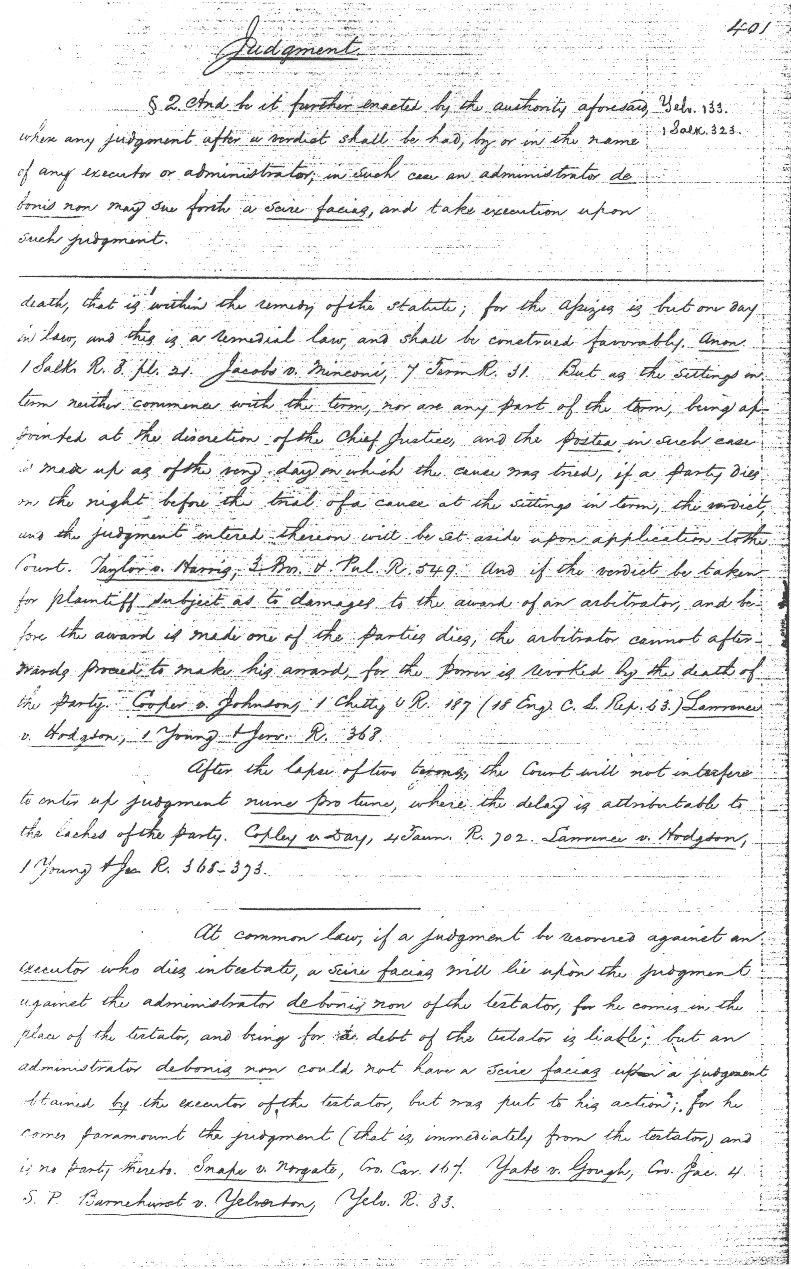 401
Judgment.
§ 2. And be it further enacted by the authority aforesaid,
when any judgment after a verdict shall be had, by or in the name
of any executor or administrator, in such case an administrator de
bonis non may sue forth a scire facias, and take execution upon
such judgment.
Yelv. 133.
1 Salk. 323.
death, that is within the remedy of the statute; for the Assizes is but one day
in law, and this is a remedial law, and shall be construed favorably. Anon.
1 Salk. R. 8. pl. 21. Jacobs v. Miniconi, 7 Term R. 31. But as the Sittings in
term neither commence with the term, nor are any part of the term, being ap-
pointed at the discretion of the Chief Justice, and the postea in such case
is made up as of the very day on which the cause was tried, if a party dies
on the night before the trial of a cause at the sittings in term, the verdict,
and the judgment intered thereon will be set aside upon application to the
Court. Taylor v. Harris, 3 Bos. & Pul. R. 549. And if the verdict be taken
for plaintiff subject as to damages to the award of an arbitrator, and be-
fore the award is made one of the parties dies, the arbitrator cannot after-
wards proceed to make his award, for the power is revoked by the death of
the party. Cooper v. Johnson, 1 Chitty R. 187 (18 Eng. C. L. Rep. 63.) Lawrence
v. Hodgson, 1 Young & Jer. R. 368.
After the lapse of two terms, the Court will not interfere
to enter up judgment nunc pro tunc, where the delay is attributable to
the laches of the party. Copley v. Day, 4 Taun. R. 702. Lawrence v. Hodgson,
1 Young & Jer. R. 368-373.
At common law, if a judgment be recovered against an
executor who dies intestate, a scire facias will lie upon the judgment
against the administrator de bonis non of the testator, for he comes in the
place of the testator, and being for debt of the testator is liable; but an
administrator de bonis non could not have a scire facias upon a judgment
obtained by the executor of the testator, but was put to his action; for he
comes paramount the judgment (that is, immediately from the testator,) and
is no party thereto. Snape v. Norgate, Cro. Car. 167. Yate v. Gough, Cro. Jac. 4.
S. P. Barnehurst v. Yelverton, Yelv. R. 83.